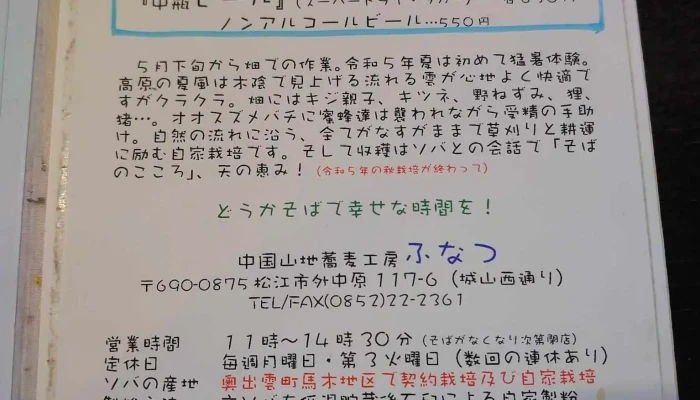 ノンアルコールビール…550円
5月下旬から畑での作業。令和5年夏は初めて猛暑体験。
高原の夏風は木陰で見上げる流れる雲が心地よく快適で
すがクラクラ。畑にはキジ親子、キツネ、野ねずみ、狸、
猪…。オオスズメバチに蜜蜂達は襲われながら受精の手助
け。自然の流れに沿う、全てがなすがままで草刈りと耕運
に励む自家栽培です。そして収穫はソバとの会話で「そば
のこころ」、天の恵み！（令和5年の秋栽培が終わって）
どうかそばで幸せな時間を！
中国山地蕎麦工房 ふなつ
〒690-0875 松江市外中原 117-6（城山西通り）
TEL/FAX(0852)22-2361
営業時間 11時～14時30分（そばがなくなり次第閉店）
定休日 毎週月曜日・第3火曜日（数回の連休あり）
ソバの産地 奥出雲町馬木地区で契約栽培及び自家栽培